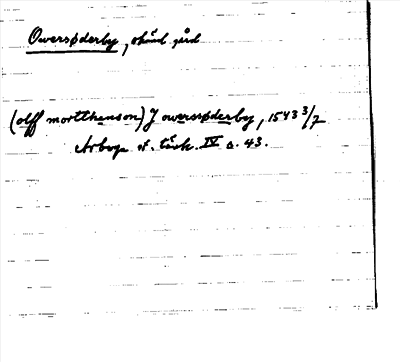 Owersøderby, okänd gård
(olff mortthenson) J owerssøderby, 1543 3/7
Arboga st. tänk. IV s. 43.